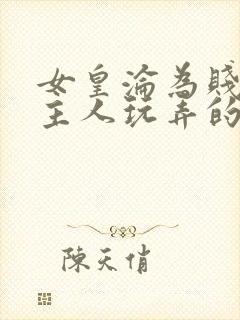 女皇淪為賤
主人玩弄的
陳天俏